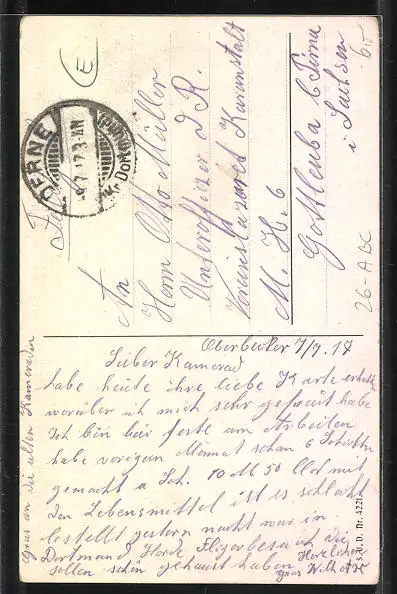 An
Herrn Otto Müller
Unteroffizier d. R.
Vereinslazarett Kuranstalt
M. H. 6
Gottleuba b Pirna
i Sachsen
DERNE
(LANDKR. DORTMUND)
9.7.17.3-4N
E
26-ABC
Oberbecker 7/7. 17
Lieber Kamerad
habe heute ihre liebe Karte erhalt
worüber ich mich sehr gefreut habe
Ich bin hier feste am Arbeiten
habe vorigen Monnat schon 6 Schichtn
gemacht a Sch. 10 M 50
Den Lebensmittel ist es schlecht
bestellt gestern nacht war in
Dortmund Horde Fligerbesuch die
sollen schön gehaust haben Herzlichen
Gruss Wilhelm
Gruss an die alten Kameraden
S. J. D. Nr. 4221